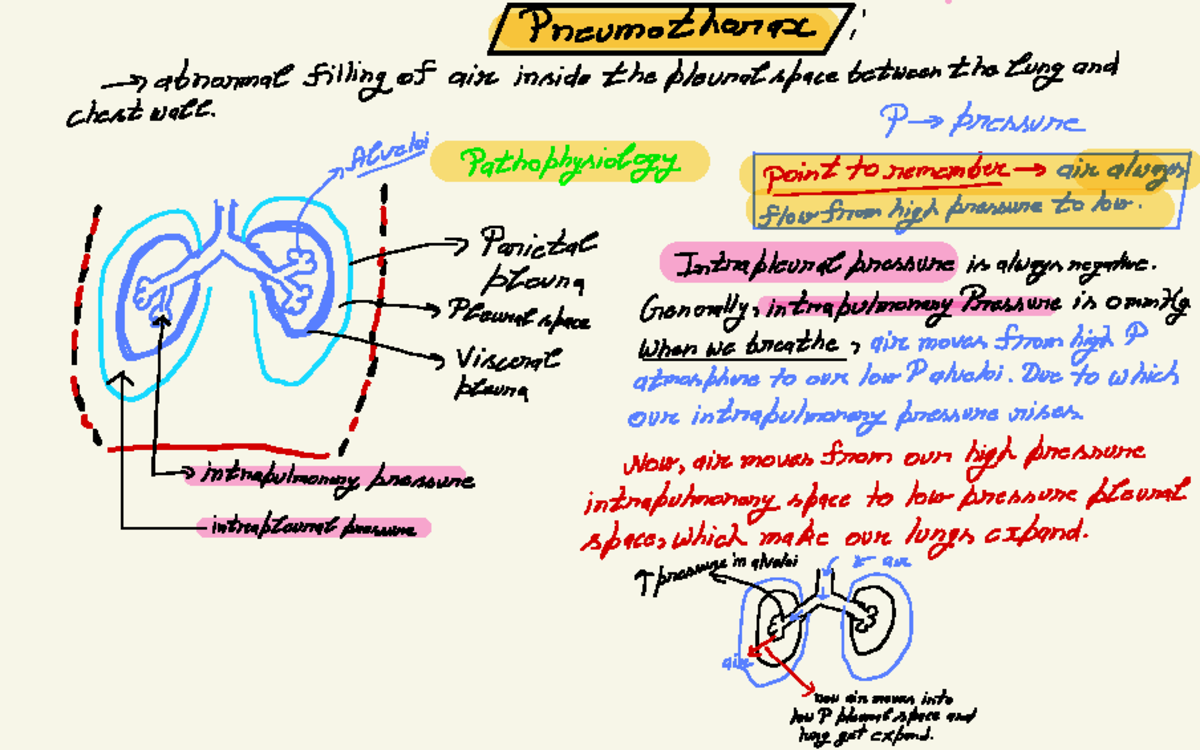 Pneumothorax ;
→ abnormal filling of air inside the pleural space between the lung and
chest wall.
P → pressure
Alveloi
Pathophysiology
Point to remember → air always
flow from high pressure to low.
Parietal
pleura
Pleural space
Visceral
pleura
Intrapleural pressure is always negative.
Generally, intrapulmonary Pressure is 0 mmHg
When we breathe, air moves from high P
atmosphere to our low P alveloi. Due to which
our intrapulmonary pressure rises
Now, air moves from our high pressure
intrapulmonary space to low pressure pleural
space, which make our lungs expand.
intrapulmonary pressure
intrapleural pressure
↑ pressure in alveloi
← air
air
now air moves into
low P pleural space and
lung get expand.